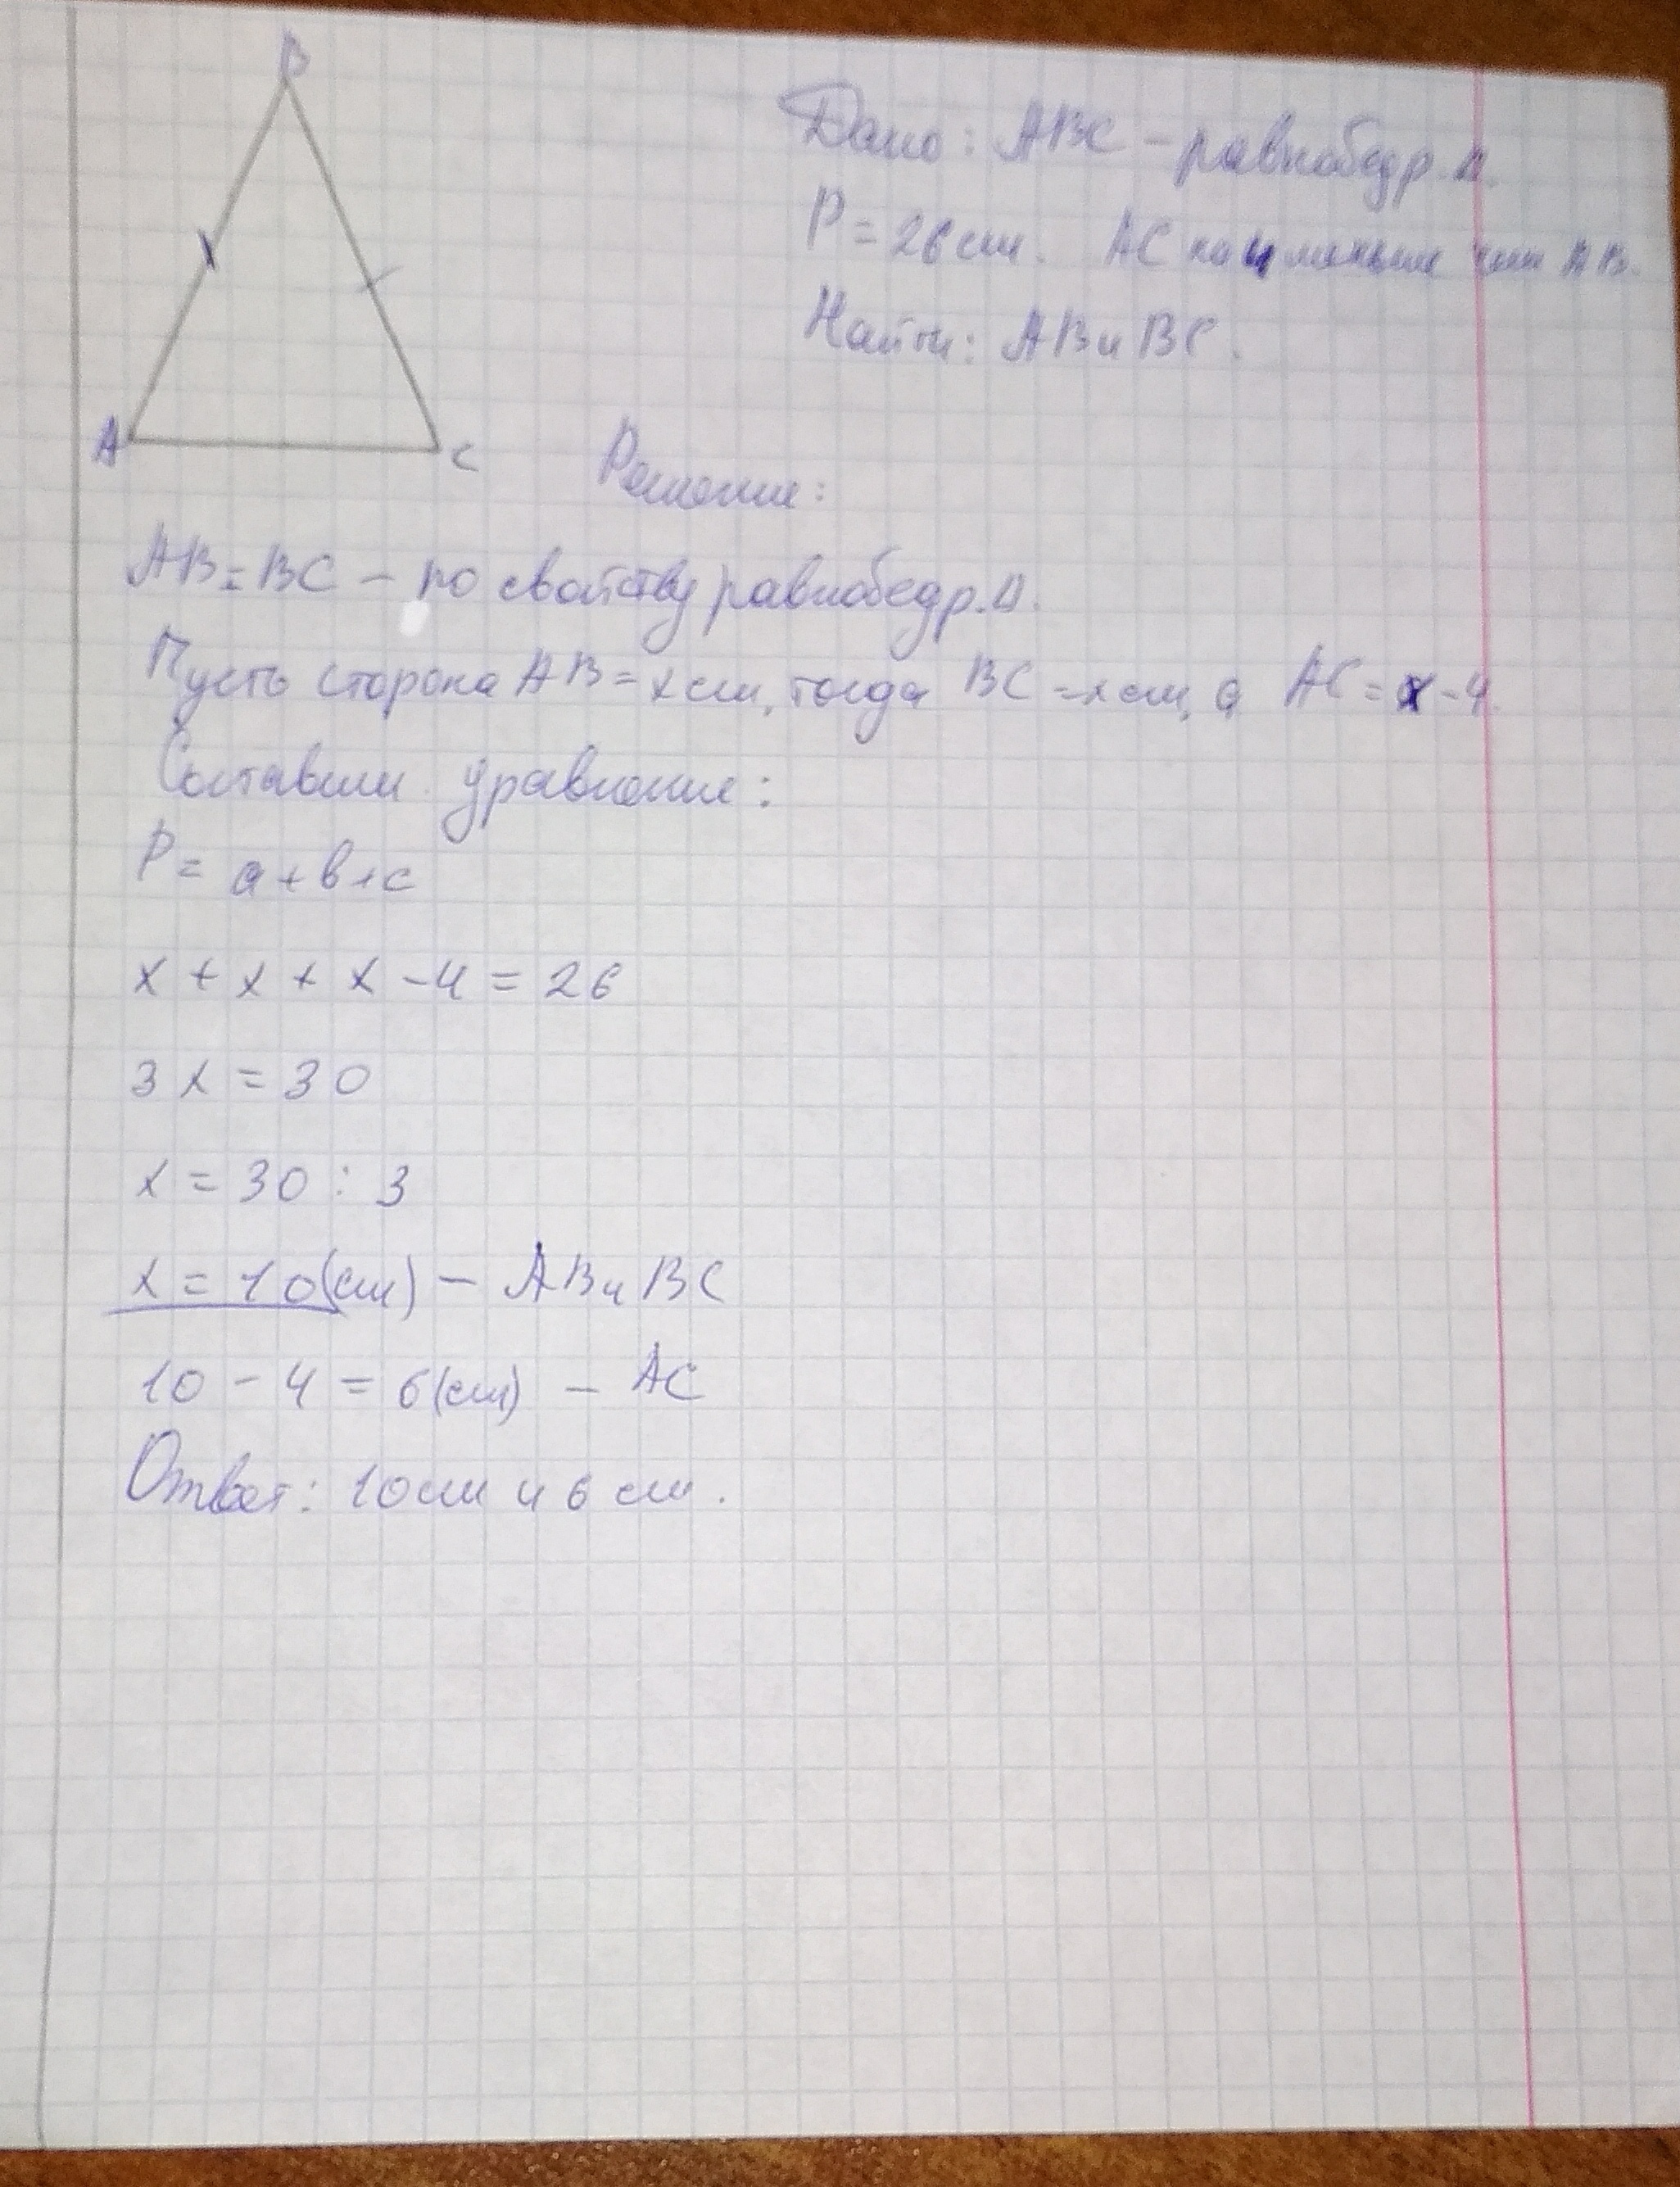 B
A
C
Дано: ABC - равнобедр. Δ.
P = 26 см. AC на 4 меньше чем AB.
Найти: AB и BC.
Решение:
AB = BC - по свойству равнобедр. Δ.
Пусть сторона AB = x см, тогда BC = x см, а AC = x - 4.
Составим уравнение:
P = a + b + c
x + x + x - 4 = 26
3x = 30
x = 30 : 3
x = 10(см) - AB и BC
10 - 4 = 6(см) - AC
Ответ: 10 см и 6 см.